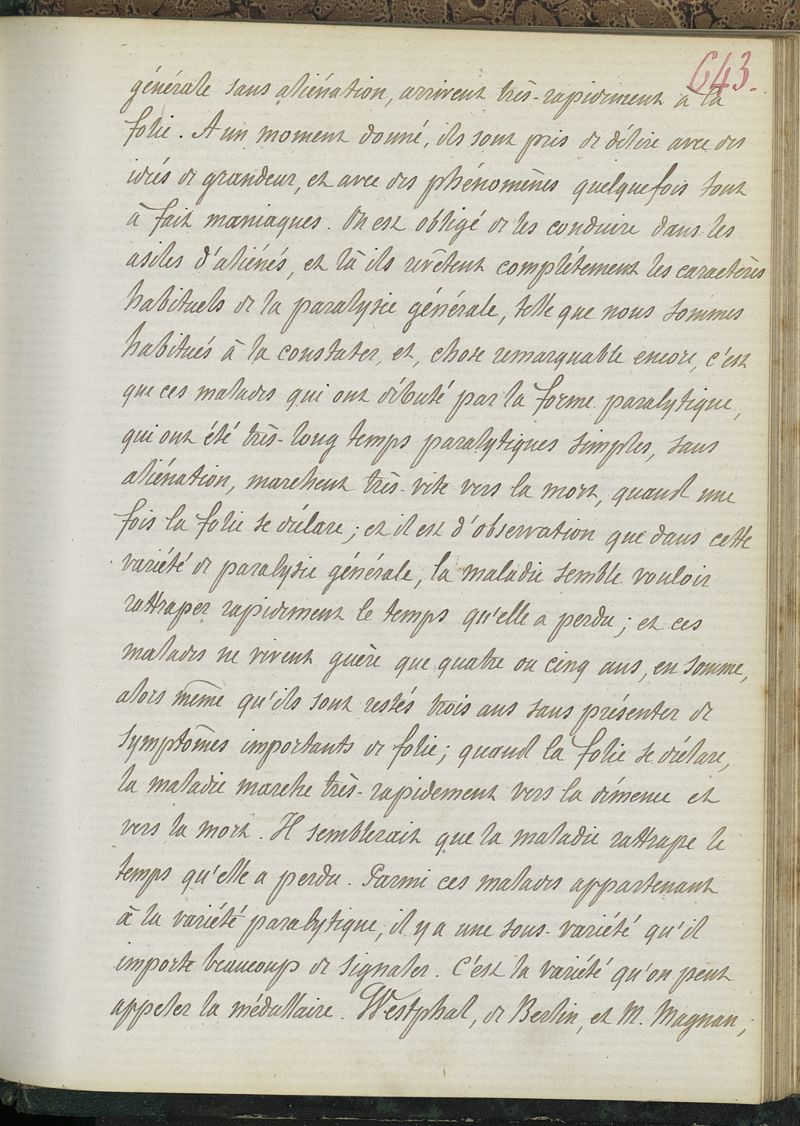 643.
générale sans aliénation, arrivent très-rapidement à la
folie. A un moment donné, ils sont pris de délire avec des
idées de grandeur, et avec des phénomènes quelquefois tout
à fait maniaques. On est obligé de les conduire dans les
asiles d'aliénés, et là ils revêtent complétement les caractères
habituels de la paralysie générale, telle que nous sommes
habitués à la constater, et, chose remarquable encore, c'est
que ces malades qui ont débuté par la forme paralytique,
qui ont été très-long temps paralytiques simples, sans
aliénation, marchent très-vite vers la mort, quand une
fois la folie se déclare; et il est d'observation que dans cette
variété de paralysie générale, la maladie semble vouloir
rattraper rapidement le temps qu'elle a perdu; et ces
malades ne vivent guère que quatre ou cinq ans, en somme,
alors même qu'ils sont restés trois ans sans présenter de
symptômes importants de folie; quand la folie se déclare,
la maladie marche très-rapidement vers la démence et
vers la mort. Il semblerait que la maladie rattrape le
temps qu'elle a perdu. Parmi ces malades appartenant
à la variété paralytique, il y a une sous-variété qu'il
importe beaucoup de signaler. C'est la variété qu'on peut
appeler la médullaire. Westphal, de Berlin, et M. Magnan,